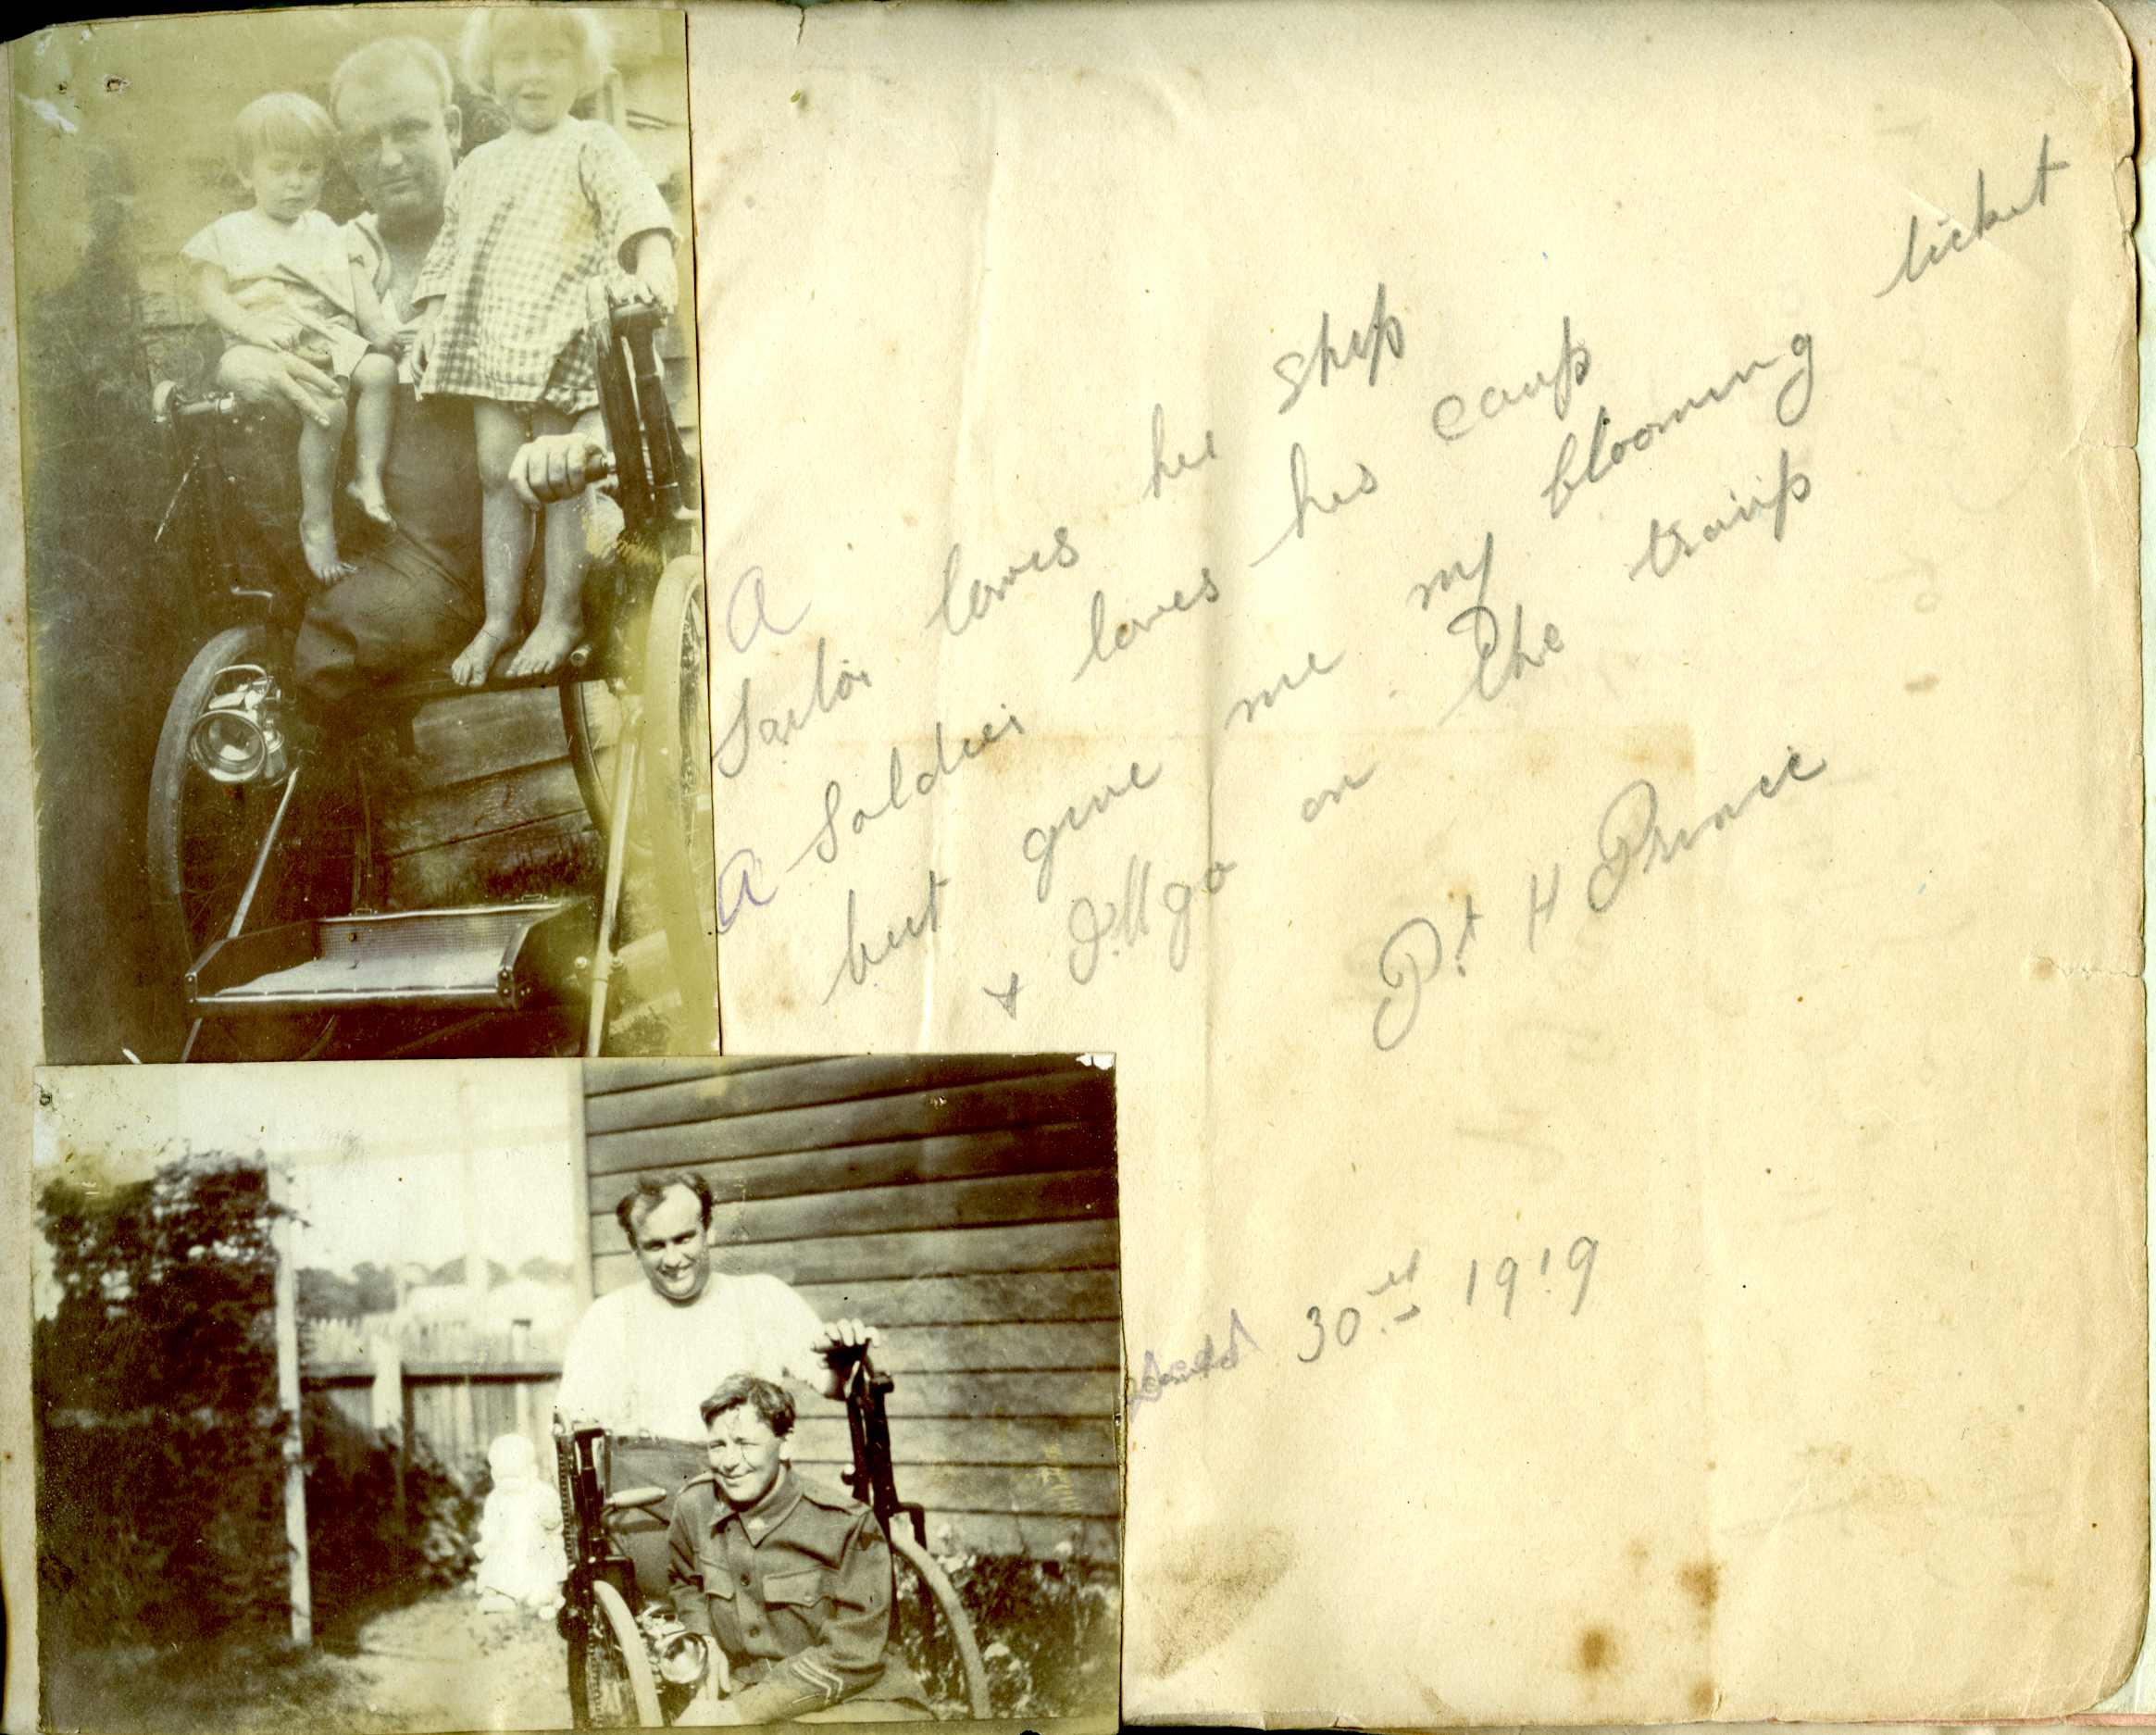 A
Sailor loves his ship
A Soldier loves his camp
but give me my blooming ticket
& I'll go on the tramp
Pt H Prince
30th 1919